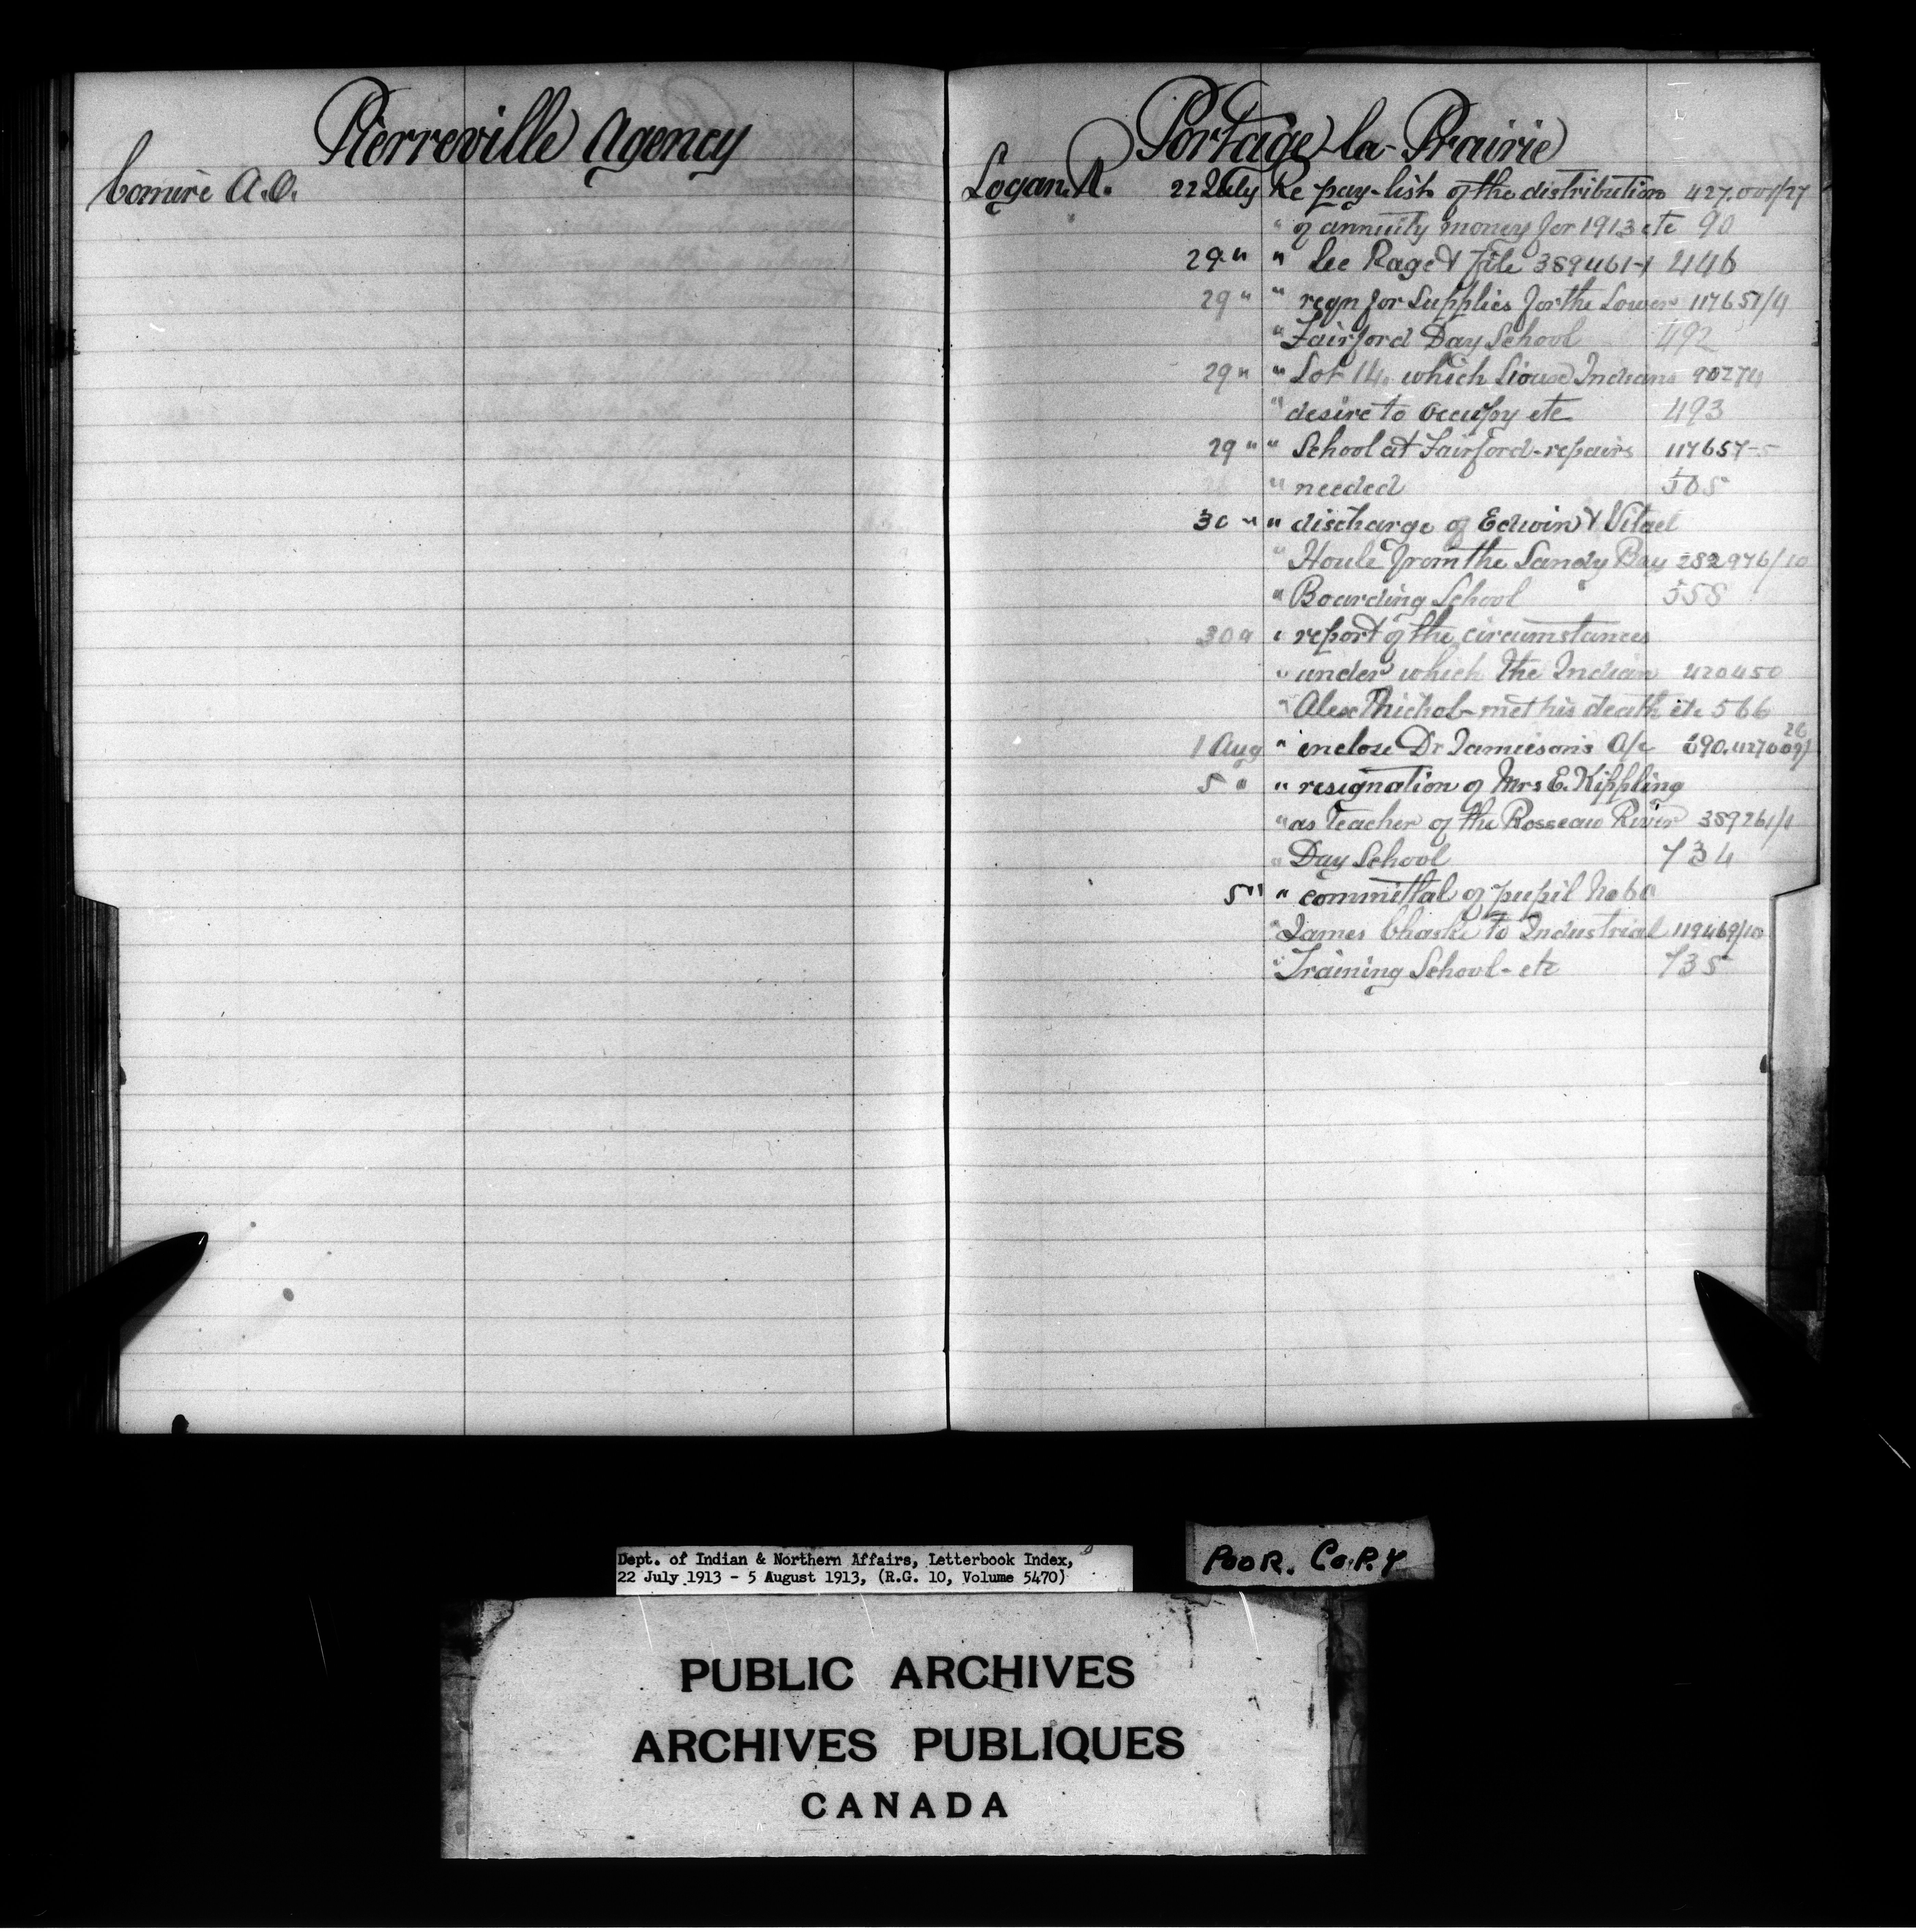 Pierreville Agency
Comire A.O.
Portage-la-Prairie
Logan R. 22 July Re pay-list of the distribution 427.009/27
" of annuity money for 1913 etc 90
29 " " See Page & File 389461-1 446
29 " " reqn for Supplies for the Lower 117657/4
" Fairford Day School 492
29 " " Lot 14, which Sioux Indians 90274
" desire to occupy etc 493
29 " " School at Fairford-repairs 117657-5
" needed 505
30 " " discharge of Edwin & Vitael
" Houle from the Sandy Bay 282976/10
" Boarding School 558
30 " " report of the circumstances
" under which the Indian 420450
" Alex met his death etc 566
1 Aug " enclose Dr Jamieson's A/c 690.427009/26
5 " " resignation of Mrs E. Kippling
" as Teacher of the Rosseau River 389261/1
" Day School 734
5 " " committal of pupil No 60
" James Chaske to Industrial 119469/10
" Training School - etc 735
Dept. of Indian & Northern Affairs, Letterbook Index,
22 July 1913 - 5 August 1913, (R.G. 10, Volume 5470)
POOR. COPY
PUBLIC ARCHIVES
ARCHIVES PUBLIQUES
CANADA